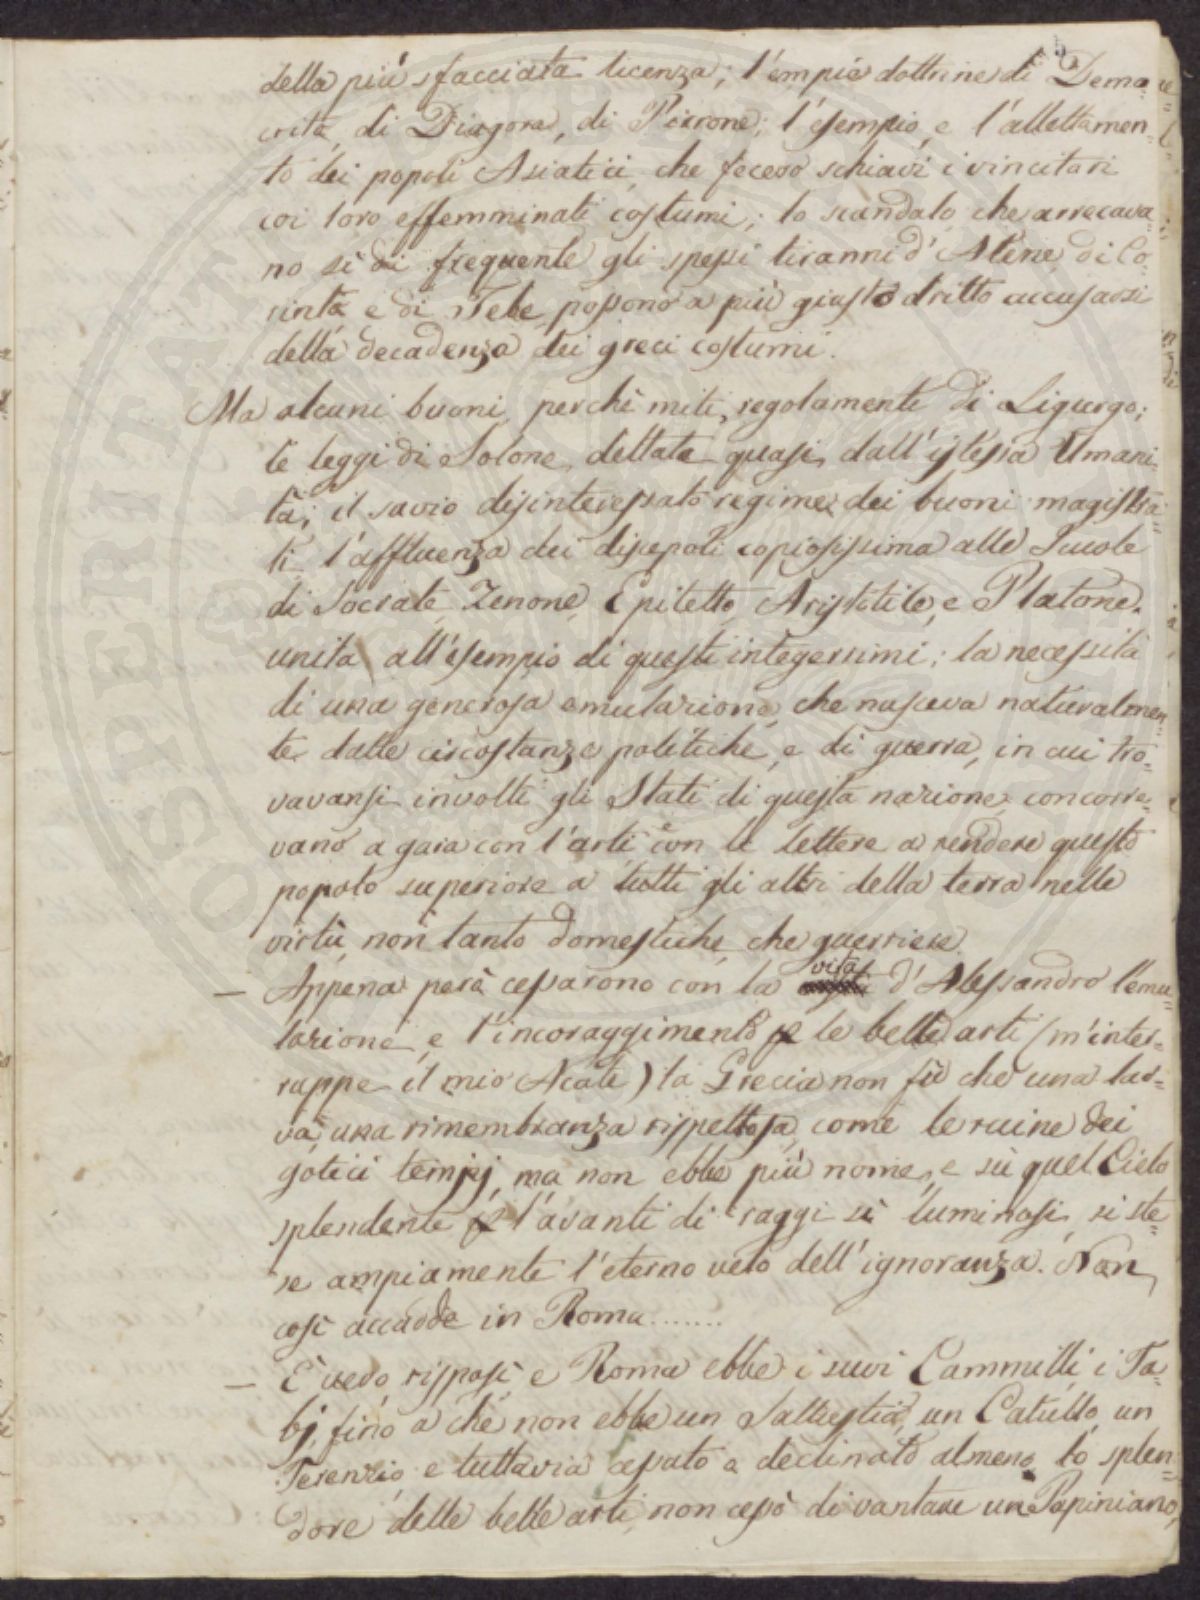 5
della più sfacciata licenza; l'empie dottrine di Demo
crito, di Diagora, di Pirrone; l'esempio, e l'allettamen=
to dei popoli Asiatici, che fecero schiavi i vincitori
coi loro effemminati costumi; lo scandalo che arrecava=
no sì di frequente gli spessi tiranni d'Atene, di Co=
rinto e di Tebe possono a più giusto dritto accusarsi
della decadenza dei greci costumi.
Ma alcuni buoni, perchè miti, regolamenti di Ligurgo;
le leggi di Solone, dettate quasi dall'istessa Umani=
tà; il savio disinteressato regime dei buoni magistra=
ti l'affluenza dei discepoli copiosissima alle Scuole
di Socrate, Zenone, Epitetto, Aristotile, e Platone,
unita all'esempio di questi integerrimi; la necessità
di una generosa emulazione, che nasceva naturalmen=
te dalle circostanze politiche, e di guerra, in cui tro=
vavansi involti gli Stati di questa nazione, concorre=
vano a gara con l'arti con le lettere a rendere questo
popolo superiore a tutti gli altri della terra nelle
virtù, non tanto domestiche, che guerriere.
— Appena però cessarono con la vita d'Alessandro l'emu=
lazione, e l'incoraggimento p le belle arti (m'inter=
ruppe il mio Acate) la Grecia non fù che una lar=
va, una rimembranza rispettosa, come le ruine dei
gotici tempj, ma non ebbe più nome, e sù quel Cielo
splendente p l'avanti di raggi sì luminosi, si ste=
se ampiamente l'eterno velo dell'ignoranza. Non
così accadde in Roma.......
— È vero, risposi, e Roma ebbe i suoi Cammilli, i Fa=
bj, fino a che non ebbe un Sallustio, un Catullo, un
Terenzio, e tuttavia cessato o declinato almeno lo splen=
dore delle belle arti, non cessò di vantare un Papiniano,